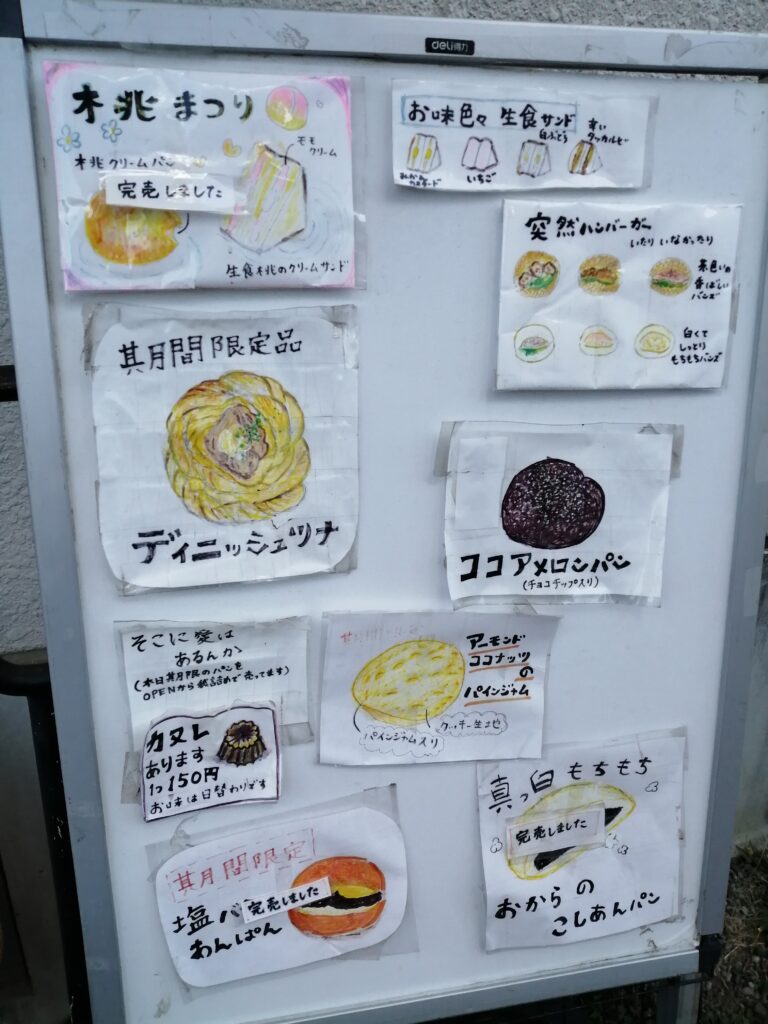 deli得力
桃まつり
モモ
クリーム
桃クリームパン
完売しました
生食桃のクリームサンド
お味色々 生食サンド
白ぶどう
みかん
カスタード
いちご
突然ハンバーガー
いたり いなかったり
茶色いの
香ばしい
バンズ
白くて
しっとり
もちもちバンズ
期間限定品
ディニッシュツナ
ココアメロンパン
(チョコチップ入り)
そこに愛は
あるんか
(本日期限のパンを
OPENから袋詰めで売ってます)
カヌレ
あります
1つ150円
お味は日替わりです
アーモンド
ココナッツ
の
パインジャム
クッキー生地
パインジャム入り
期間限定
塩バ
完売しました
あんぱん
真っ白もちもち
完売しました
おからの
こしあんパン